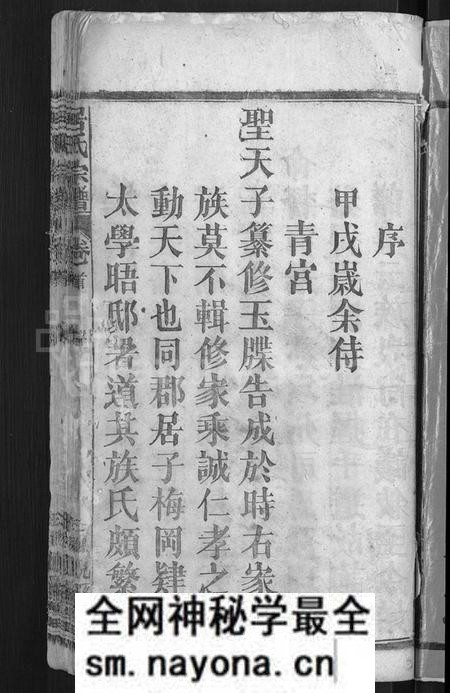 序
甲戌嵗余侍
青宮
聖天子纂修玉牒告成於時右家
族莫不輯修家乘誠仁孝之
動天下也同郡居子梅岡肄
太學晤邸署道其族氏頗繁
居氏宗譜 卷首
全网神秘学最全
sm.nayona.cn